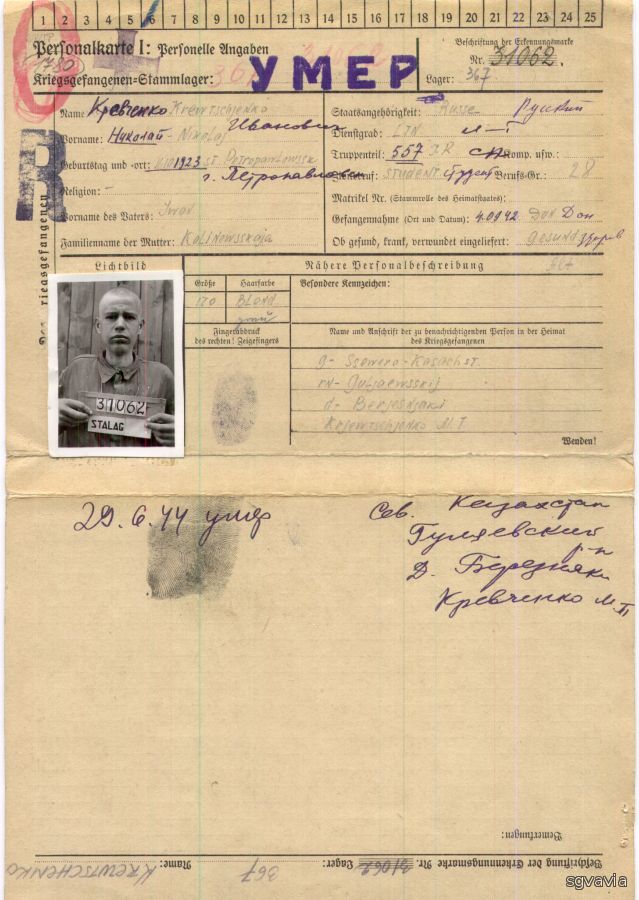 1 2 3 4 5 6 7 8 9 10 11 12 13 14 15 16 17 18 19 20 21 22 23 24 25
Personalkarte I: Personelle Angaben
Beschriftung der Erkennungsmarke
1780
31062
Nr. 31062.
Kriegsgefangenen-Stammlager:
367
УМЕР
Lager: 367
R
Des Kriegsgefangenen
Name: Кревченко Krewtschenko
Vorname: Николай Nikolaj Иванович
Geburtstag und -ort: 1923 st. Petropawlowsk
г. Петропавловск
Religion: –
Vorname des Vaters: Iwan
Familienname der Mutter: Kalinowsskaja
Staatsangehörigkeit: Russe Русский
Dienstgrad: LTN л-т
Truppenteil: 557 IR Komp. usw.:
Student Berufs-Gr.: 28
Matrikel Nr. (Stammrolle des Heimatstaates)
Gefangennahme (Ort und Datum): 4.09.42 Don Дон
Ob gesund, krank, verwundet eingeliefert: gesund здоров
Lichtbild
Nähere Personalbeschreibung
Größe
Haarfarbe
Besondere Kennzeichen:
170
Blond
Fingerabdruck
des rechten! Zeigefingers
Name und Anschrift der zu benachrichtigenden Person in der Heimat
des Kriegsgefangenen
g- Ssewero-Kasachst.
rn- Guljaewsskij
d- Berjesnjaki
Krjewtschjenko M.I.
Wenden!
31062
STALAG
29.6.44 умер
Сев. Казахстан
Гуляевский
р-н
Д. Березняки
Кревченко М.И.
Bemerkungen:
Beschriftung der Erkennungsmarke Nr. 31062 Lager: 367 Name: KREWTSCHENKO
sgvavia